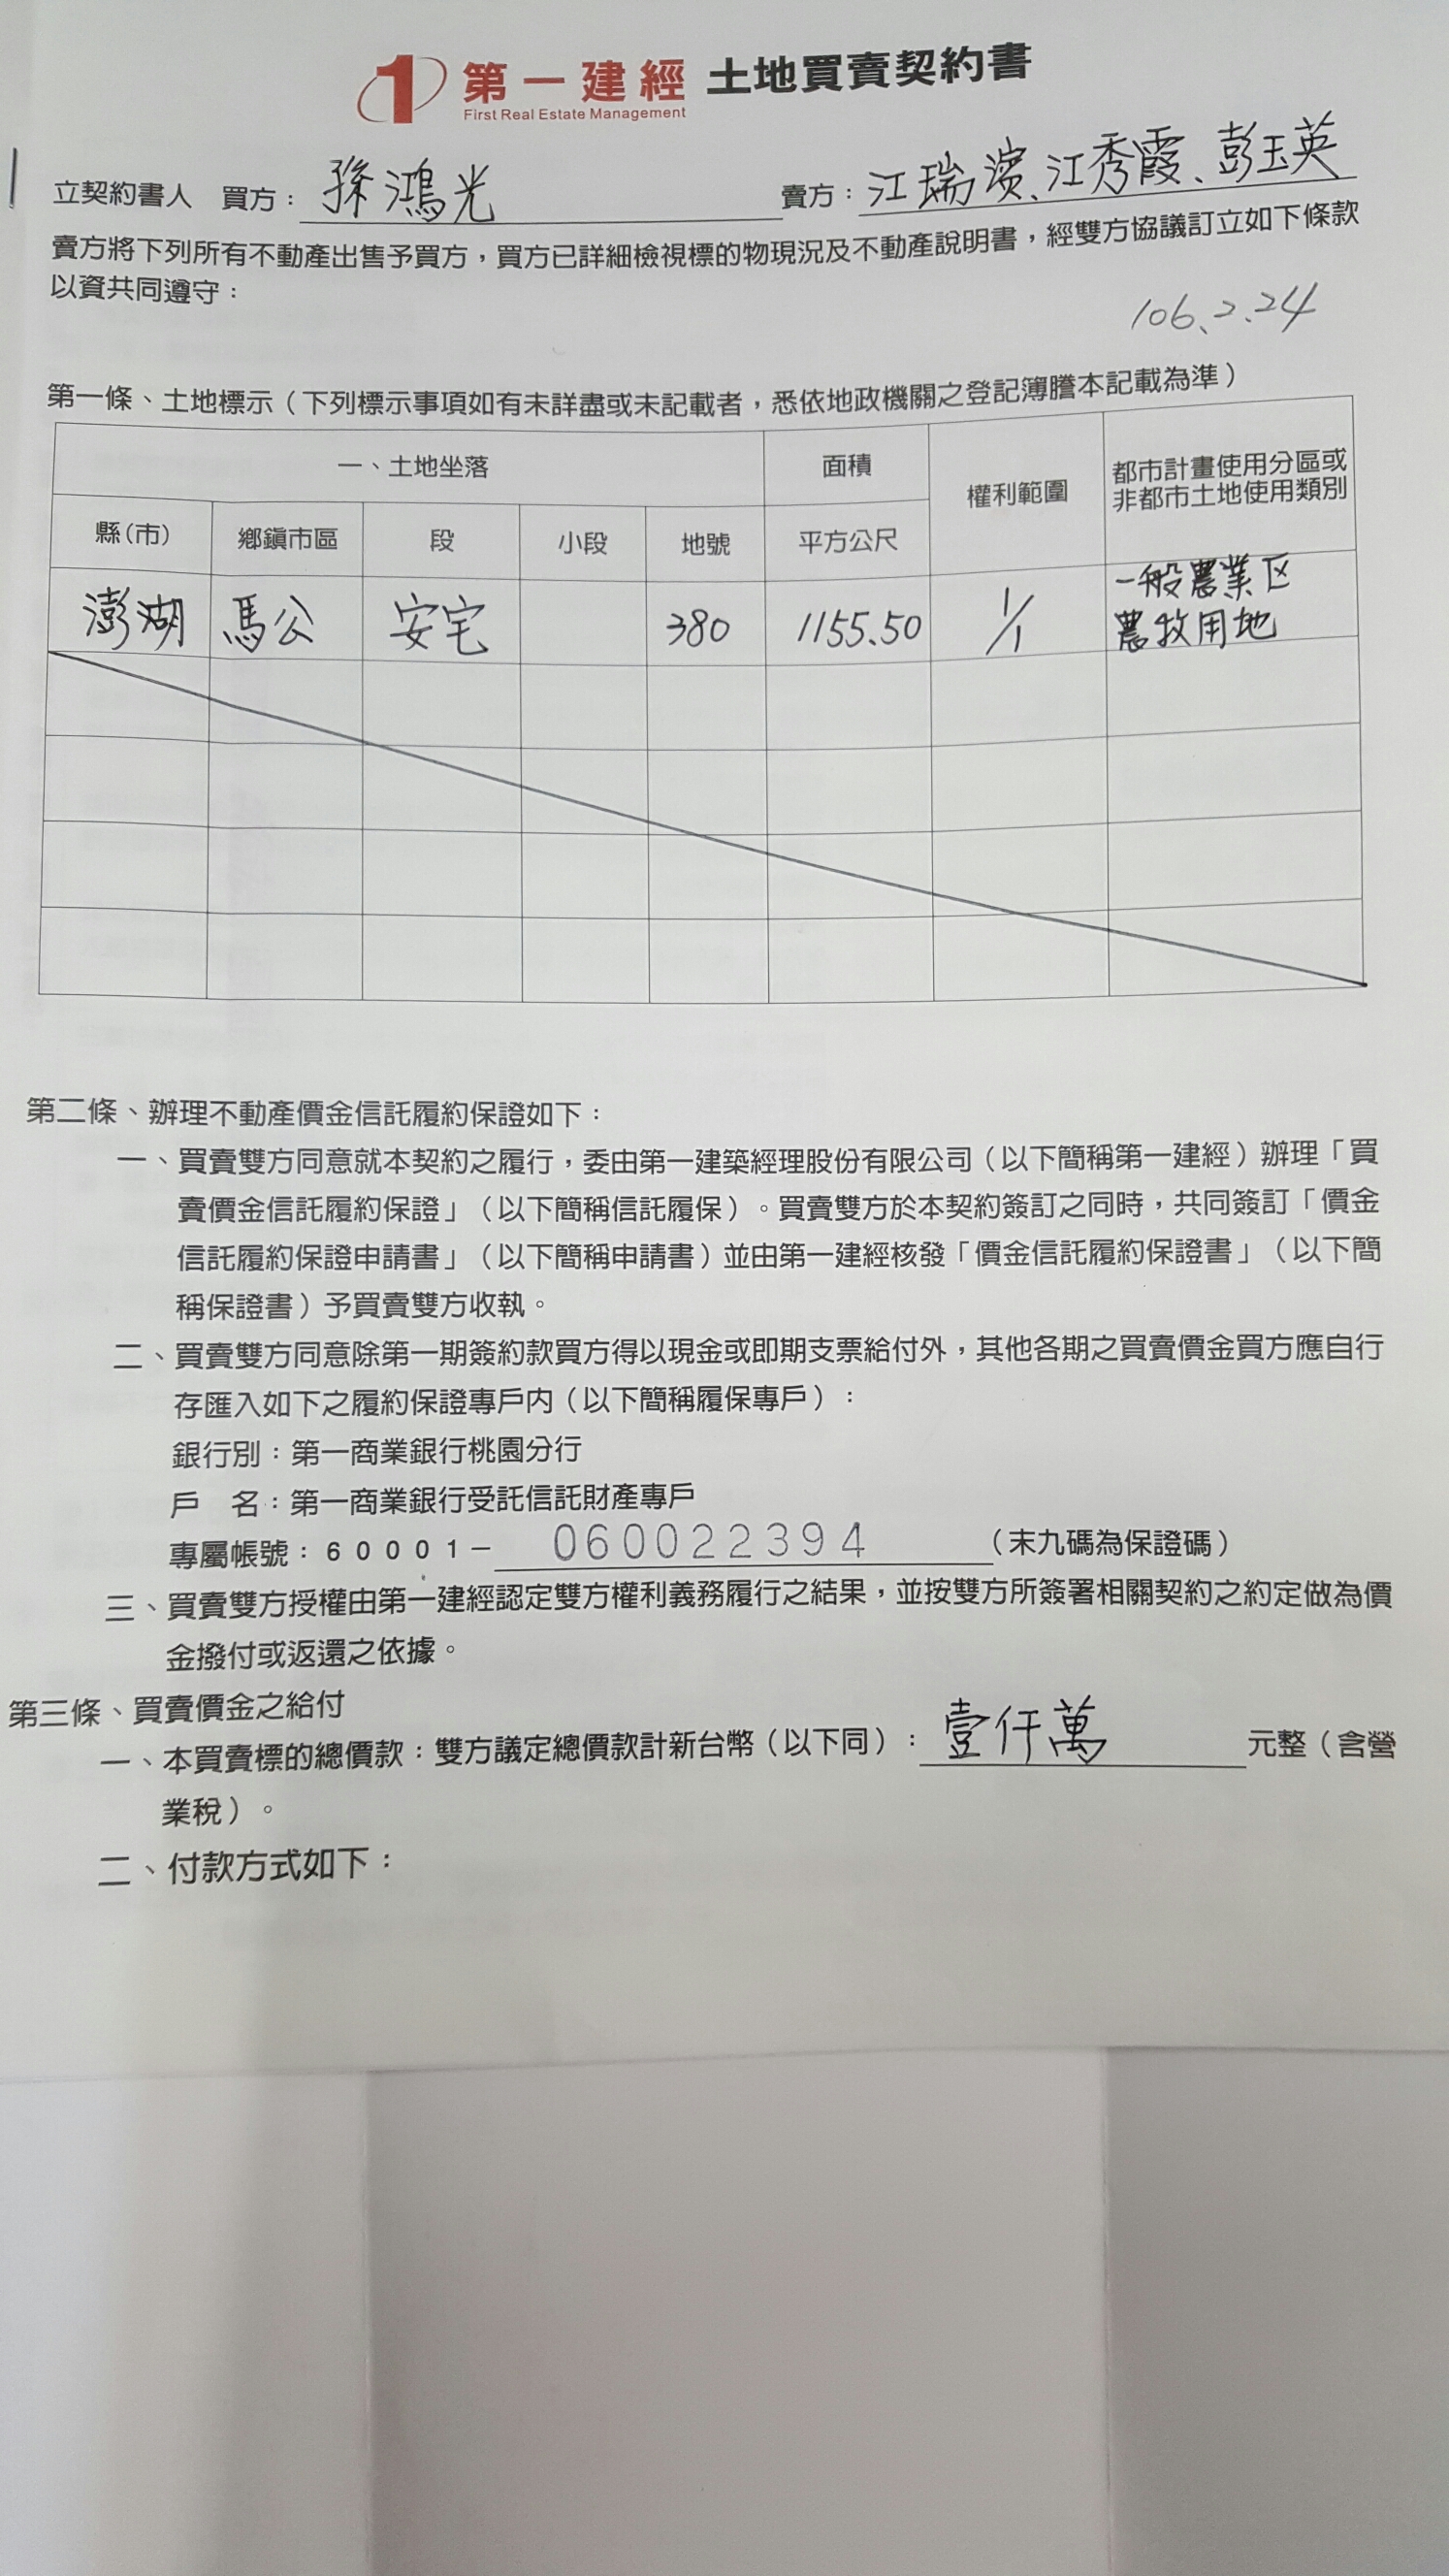 第一建經 土地買賣契約書
First Real Estate Management
立契約書人 買方：孫鴻光 賣方：江瑞濱、江秀霞、彭玉英
賣方將下列所有不動產出售予買方，買方已詳細檢視標的物現況及不動產說明書，經雙方協議訂立如下條款
以資共同遵守：
106.2.24
第一條、土地標示（下列標示事項如有未詳盡或未記載者，悉依地政機關之登記簿謄本記載為準）
一、土地坐落 面積 權利範圍 都市計畫使用分區或
非都市土地使用類別
縣(市) 鄉鎮市區 段 小段 地號 平方公尺
澎湖 馬公 安宅 380 1155.50 1/1 一般農業区
農牧用地
第二條、辦理不動產價金信託履約保證如下：
一、買賣雙方同意就本契約之履行，委由第一建築經理股份有限公司（以下簡稱第一建經）辦理「買
賣價金信託履約保證」（以下簡稱信託履保）。買賣雙方於本契約簽訂之同時，共同簽訂「價金
信託履約保證申請書」（以下簡稱申請書）並由第一建經核發「價金信託履約保證書」（以下簡
稱保證書）予買賣雙方收執。
二、買賣雙方同意除第一期簽約款買方得以現金或即期支票給付外，其他各期之買賣價金買方應自行
存匯入如下之履約保證專戶內（以下簡稱履保專戶）：
銀行別：第一商業銀行桃園分行
戶 名：第一商業銀行受託信託財產專戶
專屬帳號：60001－ 060022394 （末九碼為保證碼）
三、買賣雙方授權由第一建經認定雙方權利義務履行之結果，並按雙方所簽署相關契約之約定做為價
金撥付或返還之依據。
第三條、買賣價金之給付
一、本買賣標的總價款：雙方議定總價款計新台幣（以下同）：壹仟萬 元整（含營
業稅）。
二、付款方式如下：